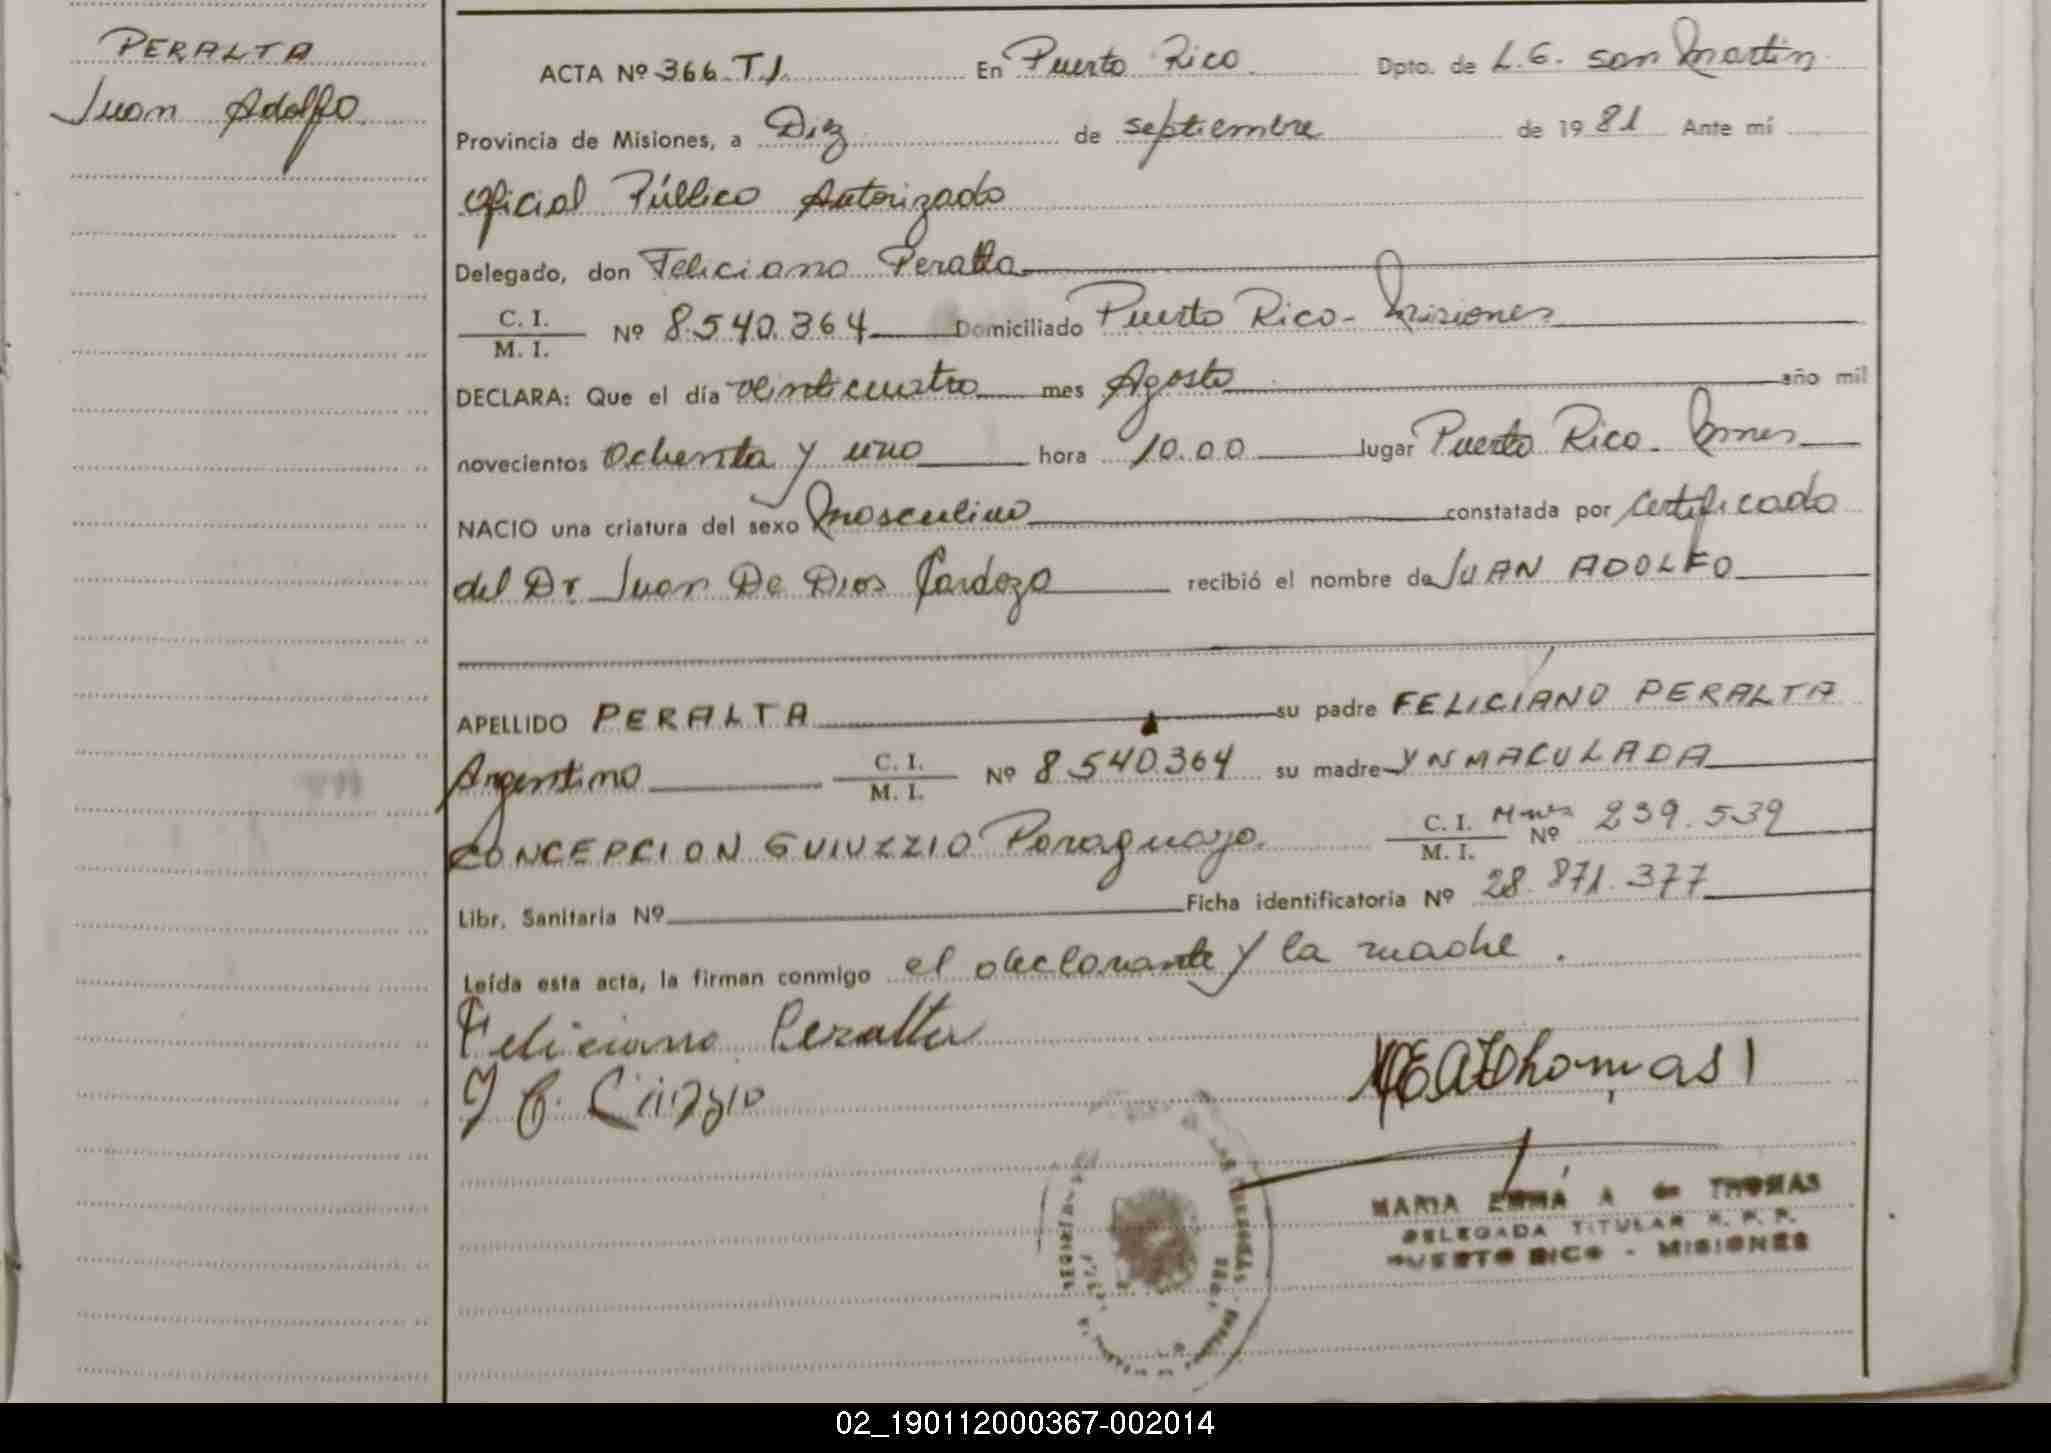 PERALTA
Juan Adolfo
ACTA Nº 366 T.I. En Puerto Rico Dpto. de L.G. San Martin
Provincia de Misiones, a Diez de septiembre de 1981 Ante mí
Oficial Público Autorizado
Delegado, don Feliciano Peralta
C. I. / M. I. Nº 8.540.364 Domiciliado Puerto Rico - Misiones
DECLARA: Que el día veinticuatro mes Agosto año mil
novecientos ochenta y uno hora 10.00 lugar Puerto Rico - Mnes
NACIO una criatura del sexo Masculino constatada por Certificado
del Dr. Juan De Dios Cardozo recibió el nombre de JUAN ADOLFO
APELLIDO PERALTA su padre FELICIANO PERALTA
Argentino C. I. / M. I. Nº 8.540.364 su madre YNMACULADA
CONCEPCION GUIUZZIO Paraguaya C. I. / M. I. Mnes Nº 239.539
Libr. Sanitaria Nº Ficha identificatoria Nº 28.871.377
Leída esta acta, la firman conmigo el declarante y la madre.
Feliciano Peralta
MEA Thomas
MARIA EMMA A de THOMAS
DELEGADA TITULAR R. P. P.
PUERTO RICO - MISIONES
02_190112000367-002014